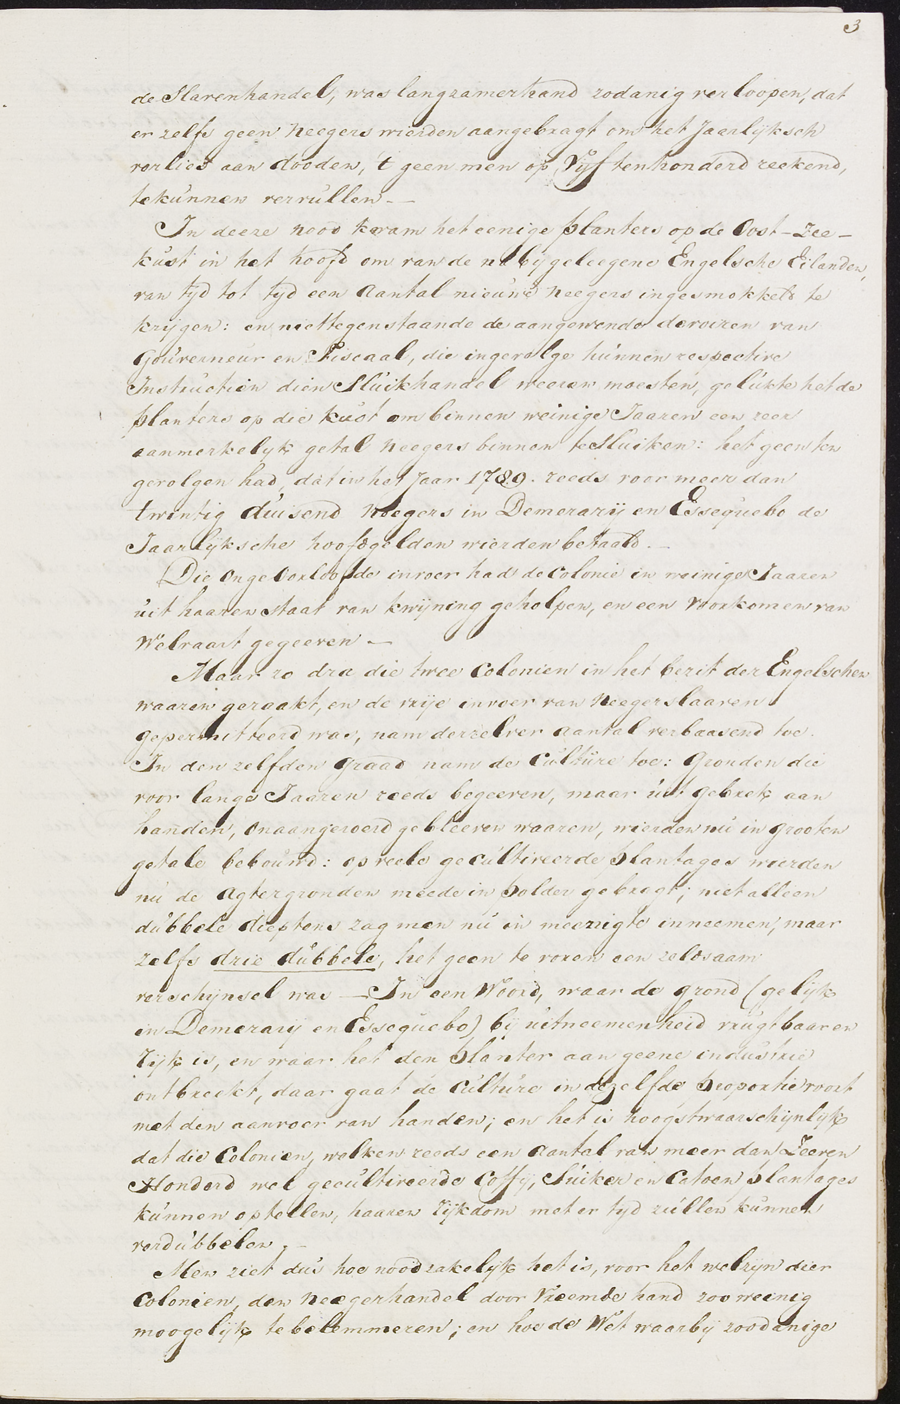 3
de Slavenhandel, was langzamerhand zodanig verloopen, dat
er zelfs geen Neegers wierden aangebragt om het Jaarlijksch
verlies aan dooden, 't geen men op Vijftenhonderd reekend,
te kunnen vervullen —
In deeze nood kwam het eenige planters op de Oost-Zee-
kust in het hoofd om van de nabijgeleegene Engelsche Eilanden,
van tyd tot tyd een Aantal nieuwe Neegers ingesmokkeld te
krijgen: en niettegenstaande de aangewende devoiren van
Gouverneur en Fiscaal, die ingevolge hunnen respective
Instructien dien Sluikhandel weeren moesten, gelukte het de
planters op die kust om binnen weinige Jaaren een zeer
aanmerkelijk getal Neegers binnen te Sluiken: het geen ten
gevolgen had, dat in het Jaar 1789. reeds voor meer dan
twintig duisend Neegers in Demerarij en Essequebo de
Jaarlijksche hoofdgelden wierden betaald. —
Die ongeoorloofde invoer had de Colonie in weinige Jaaren
uit haaren staat van kwijning geholpen, en een Voorkomen van
Welvaart gegeeven —
Maar zo dra die twee Colonien in het bezit der Engelschen
waaren geraakt, en de vrije invoer van Neegerslaaven
gepermitteerd was, nam derzelver Aantal verbaasend toe.
In den zelfden Graad nam de Culture toe: Gronden die
voor lange Jaaren reeds begeeven, maar uit gebrek aan
handen, onaangeroerd gebleeven waaren, wierden nu in grooten
getale bebouwd: op veele gecultiveerde plantages wierden
nu de Agtergronden meede in polder gebragt; niet alleen
dubbele dieptens zag men nu in meenigte inneemen, maar
zelfs drie dubbele, het geen te voren een zeldsaam
verschijnsel was — In een Woord, waar de grond (gelijk
in Demerarij en Essequebo) bij uitneemenheid vrugtbaar en
Rijk is, en waar het den planter aan geene industrie
ontbreekt, daar gaat de Culture in dezelfde proportie voort
met den aanvoer van handen; en het is hoogstwaarschijnlijk
dat die Colonien, welken reeds een Aantal van meer dan Zeeven
Honderd wel gecultiveerde Coffij, Suiker en Catoen plantages
kunnen optellen, haaren Rijkdom met er tyd zullen kunnen
verdubbelen, —
Men ziet dus hoe noodzakelijk het is, voor het welzijn dier
Colonien, den Neegerhandel door Vreemde hand zoo weinig
moogelijk te belemmeren; en hoe de Wet waarbij zoodanige